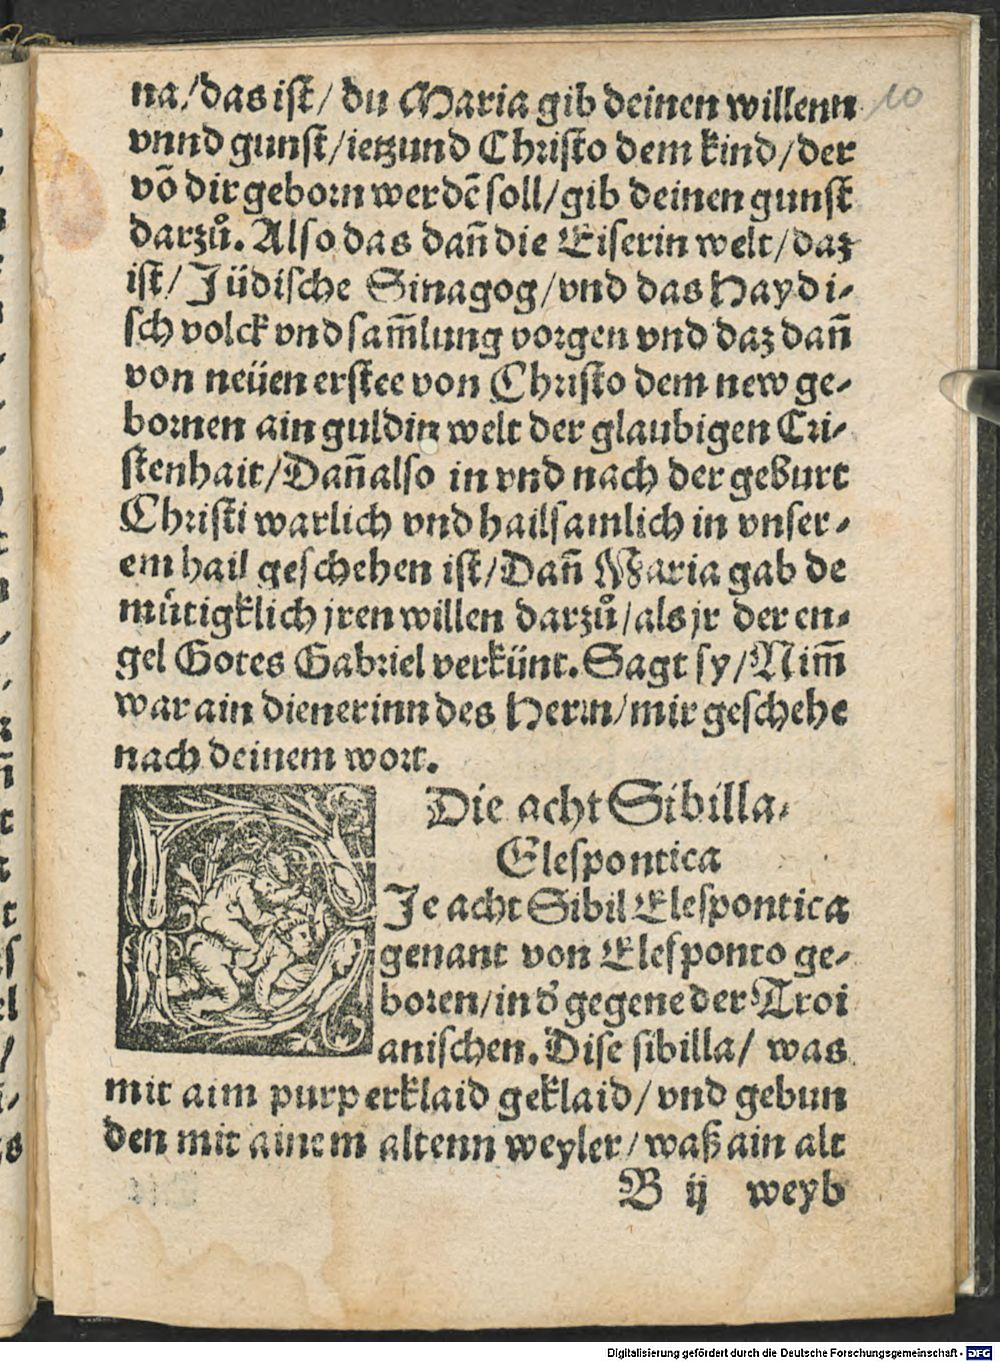 na/das ist/ du Maria gib deinen willenn
10
vnnd gunst/ietzund Christo dem kind/der
võ dir geborn werdẽ soll/gib deinen gunst
darzuͦ. Also das dañ die Eiserin welt/daz
ist/Jüdische Sinagog/vnd das Haydi-
sch volck vnd sam̃lung vorgen vnd daz dañ
von neüen erstee von Christo dem new ge-
bornen ain guldin welt der glaubigen Cri-
stenhait/Dañ also in vnd nach der geburt
Christi warlich vnd hailsamlich in vnser-
em hail geschehen ist/Dañ Maria gab de
mütigklich jren willen darzuͦ/als jr der en-
gel Gotes Gabriel verkünt. Sagt sy/Nim̃
war ain dienerinn des Herrn/mir geschehe
nach deinem wort.
Die acht Sibilla,
Elespontica
DJe acht Sibil Elespontica
genant von Elesponto ge-
boren/in d' gegene der Troi
anischen. Dise sibilla/ was
mit aim purperklaid geklaid/vnd gebun
den mit ainem altenn weyler/waß ain alt
B ij weyb
Digitalisierung gefördert durch die Deutsche Forschungsgemeinschaft - DFG